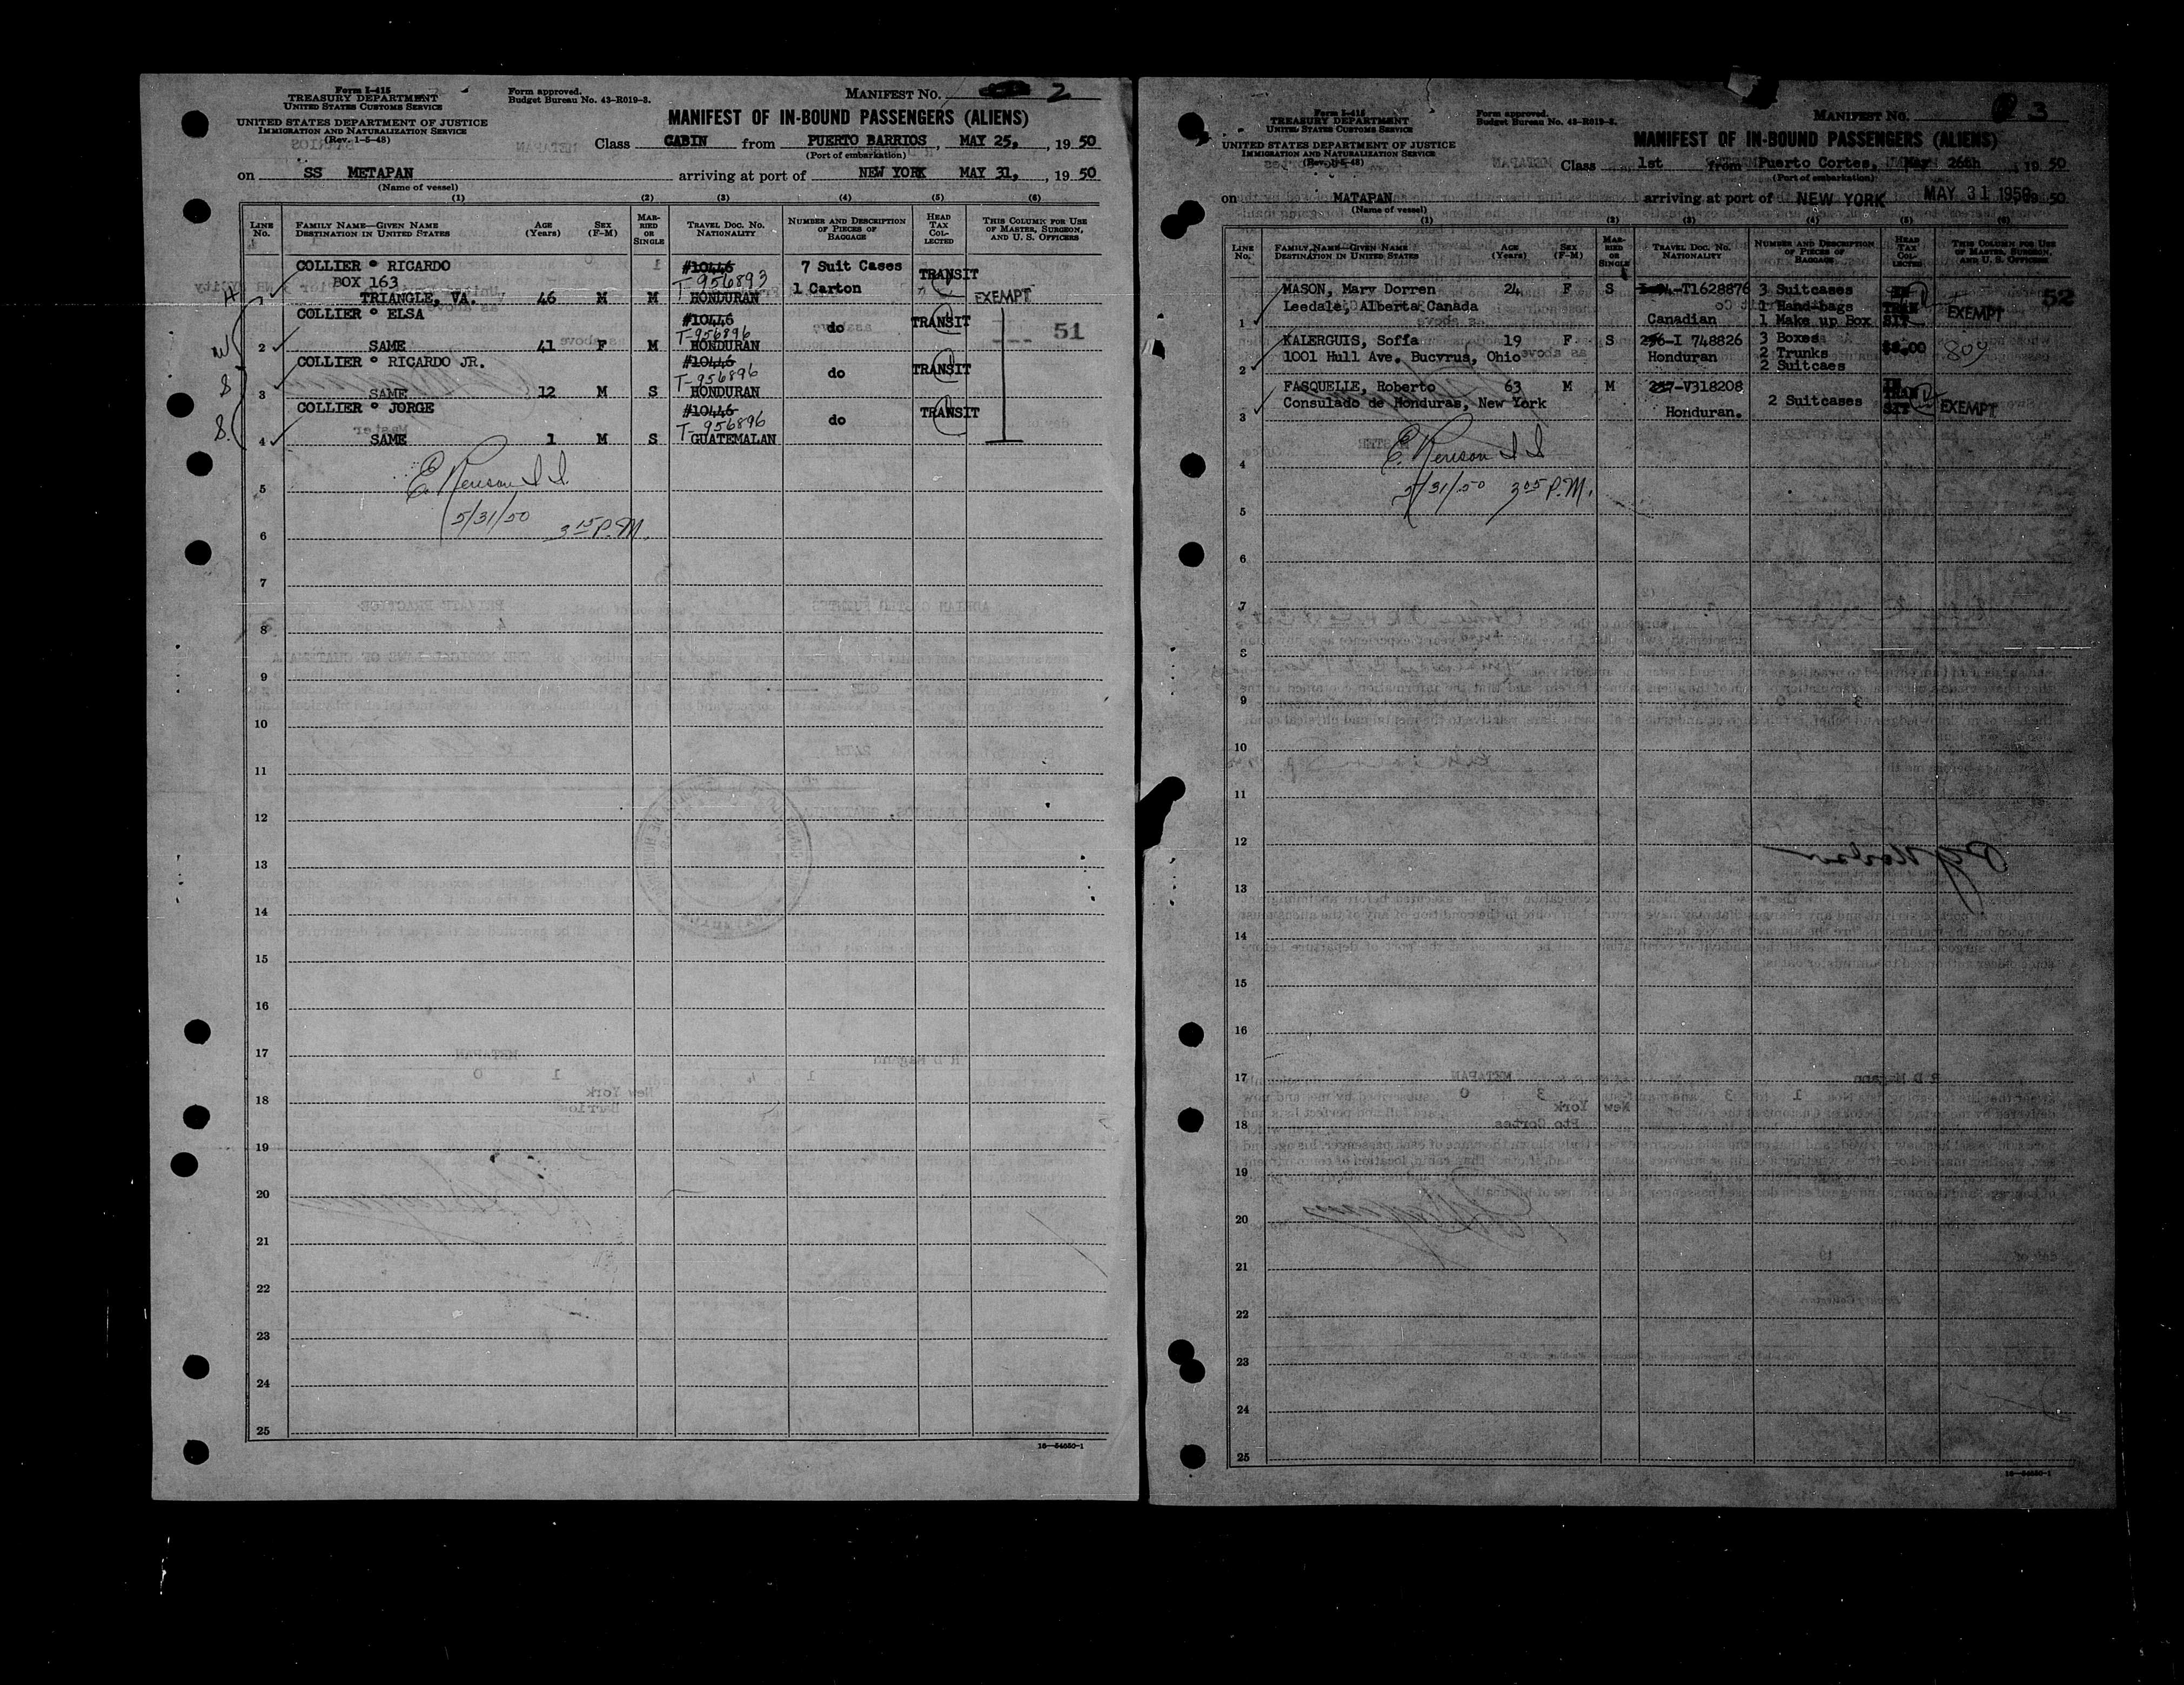 Form I-415
TREASURY DEPARTMENT
UNITED STATES CUSTOMS SERVICE
UNITED STATES DEPARTMENT OF JUSTICE
IMMIGRATION AND NATURALIZATION SERVICE
(Rev. 1-5-48)
Form approved.
Budget Bureau No. 43-R019-3.
MANIFEST No. 2
MANIFEST OF IN-BOUND PASSENGERS (ALIENS)
Class CABIN from PUERTO BARRIOS, MAY 25, 1950
(Port of embarkation)
on SS METAPAN arriving at port of NEW YORK MAY 31, 1950
(Name of vessel)
(1) (2) (3) (4) (5) (6)
LINE No. FAMILY NAME—GIVEN NAME DESTINATION IN UNITED STATES AGE (Years) SEX (F-M) MARRIED OR SINGLE TRAVEL DOC. No. NATIONALITY NUMBER AND DESCRIPTION OF PIECES OF BAGGAGE HEAD TAX COLLECTED THIS COLUMN FOR USE OF MASTER, SURGEON, AND U. S. OFFICERS
COLLIER RICARDO #10446 7 Suit Cases TRANSIT
BOX 163 T-956893 1 Carton
TRIANGLE, VA. 46 M M HONDURAN EXEMPT
COLLIER ELSA #10446 TRANSIT
T-956896 do 51
2 SAME 41 F M HONDURAN
COLLIER RICARDO JR. #10446 TRANSIT
T-956896 do
3 SAME 12 M S HONDURAN
COLLIER JORGE #10446 TRANSIT
T-956896 do
4 SAME 1 M S GUATEMALAN
5
5/31/50 3 15 P.M.
6
7
8
9
10
11
12
13
14
15
16
17
18
19
20
21
22
23
24
25
16—54650-1
Form I-415
TREASURY DEPARTMENT
UNITED STATES CUSTOMS SERVICE
UNITED STATES DEPARTMENT OF JUSTICE
IMMIGRATION AND NATURALIZATION SERVICE
(Rev. 1-5-48)
Form approved.
Budget Bureau No. 43-R019-3.
MANIFEST No. 3
MANIFEST OF IN-BOUND PASSENGERS (ALIENS)
Class 1st from Puerto Cortes, May 26th, 1950
(Port of embarkation)
on MATAPAN arriving at port of NEW YORK MAY 31 1950
(Name of vessel)
(1) (2) (3) (4) (5) (6)
LINE No. FAMILY NAME—GIVEN NAME DESTINATION IN UNITED STATES AGE (Years) SEX (F-M) MARRIED OR SINGLE TRAVEL DOC. No. NATIONALITY NUMBER AND DESCRIPTION OF PIECES OF BAGGAGE HEAD TAX COLLECTED THIS COLUMN FOR USE OF MASTER, SURGEON, AND U. S. OFFICERS
MASON, Mary Dorren 24 F S T1628876 3 Suitcases IN 52
Leedale, Alberta Canada 1 Hand-bags TRAN EXEMPT
1 Canadian 1 Make up Box SIT
KALERGUIS, Soffa 19 F S 256-I 748826 3 Boxes $8.00 809
1001 Hull Ave. Bucyrus, Ohio Honduran 2 Trunks
2 2 Suitcaes
FASQUELLE, Roberto 63 M M 257-V318208 2 Suitcases IN TRAN SIT EXEMPT
Consulado de Honduras, New York
3 Honduran.
4
5/31/50 3 05 P.M.
5
6
7
8
9
10
11
12
13
14
15
16
17
18
19
20
21
22
23
24
25
16—54650-1